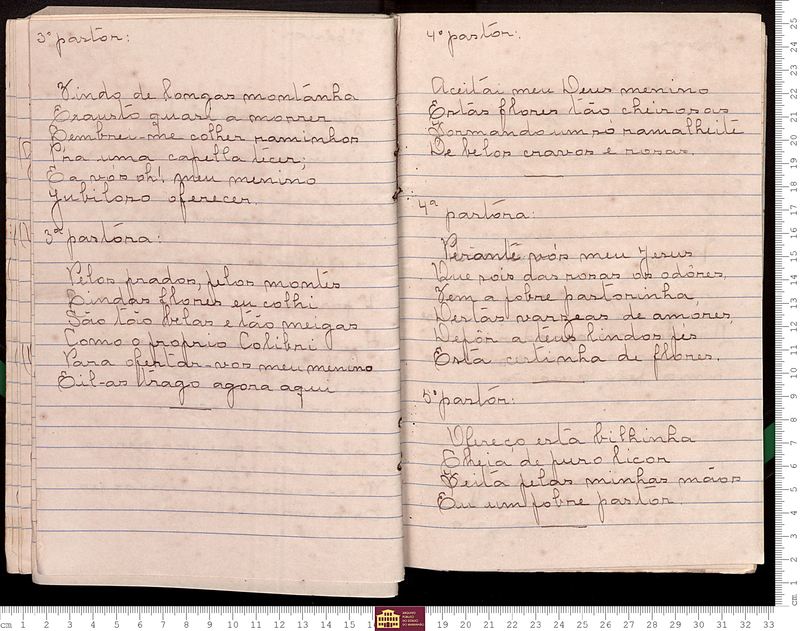 3º pastor:
Vindo de longas montánha
Exausto quasi a morrer
Lembrei-me colher raminhos
P'ra uma capella tecer;
E a vos oh! meu menino
Jubiloso oferecer.
3ª pastóra:
Pelos prados, pelos montes
Lindas flores eu colhi
São tão belas e tão meigas
Como o proprio Colibri
Para ofertar-vos meu menino
Eil-as trago agora aqui
4º pastór:
Aceitai meu Deus menino
Estas flores tão cheirosas
Formando um só ramalheite
De belos cravos e rosas
4ª pastóra:
Perante vós meu Jesus
Que sois das rosas os odóres,
Vem a pobre pastorinha,
Destas varzeas de amores,
Depôr a teus lindos pés
Esta cestinha de flores.
5º pastór:
Ofereço esta bilhinha
Cheia de puro licor
Feita pelas minhas mãos
Eu um pobre pastor.